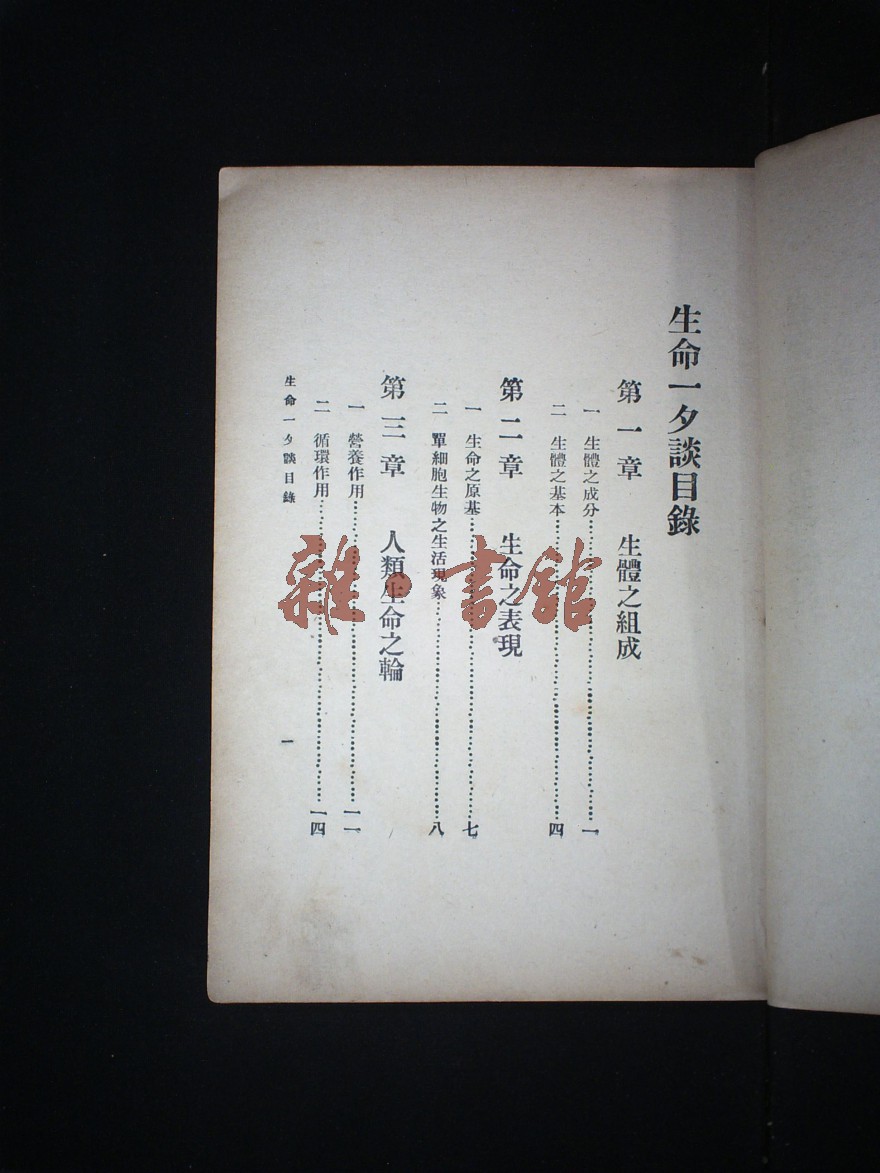 生命一夕談目錄
第一章 生體之組成
一 生體之成分……一
二 生體之基本……四
第二章 生命之表現
一 生命之原基……七
二 單細胞生物之生活現象……八
第三章 人類生命之輪
一 營養作用……一一
二 循環作用……一四
生命一夕談目錄 一
雜·書館